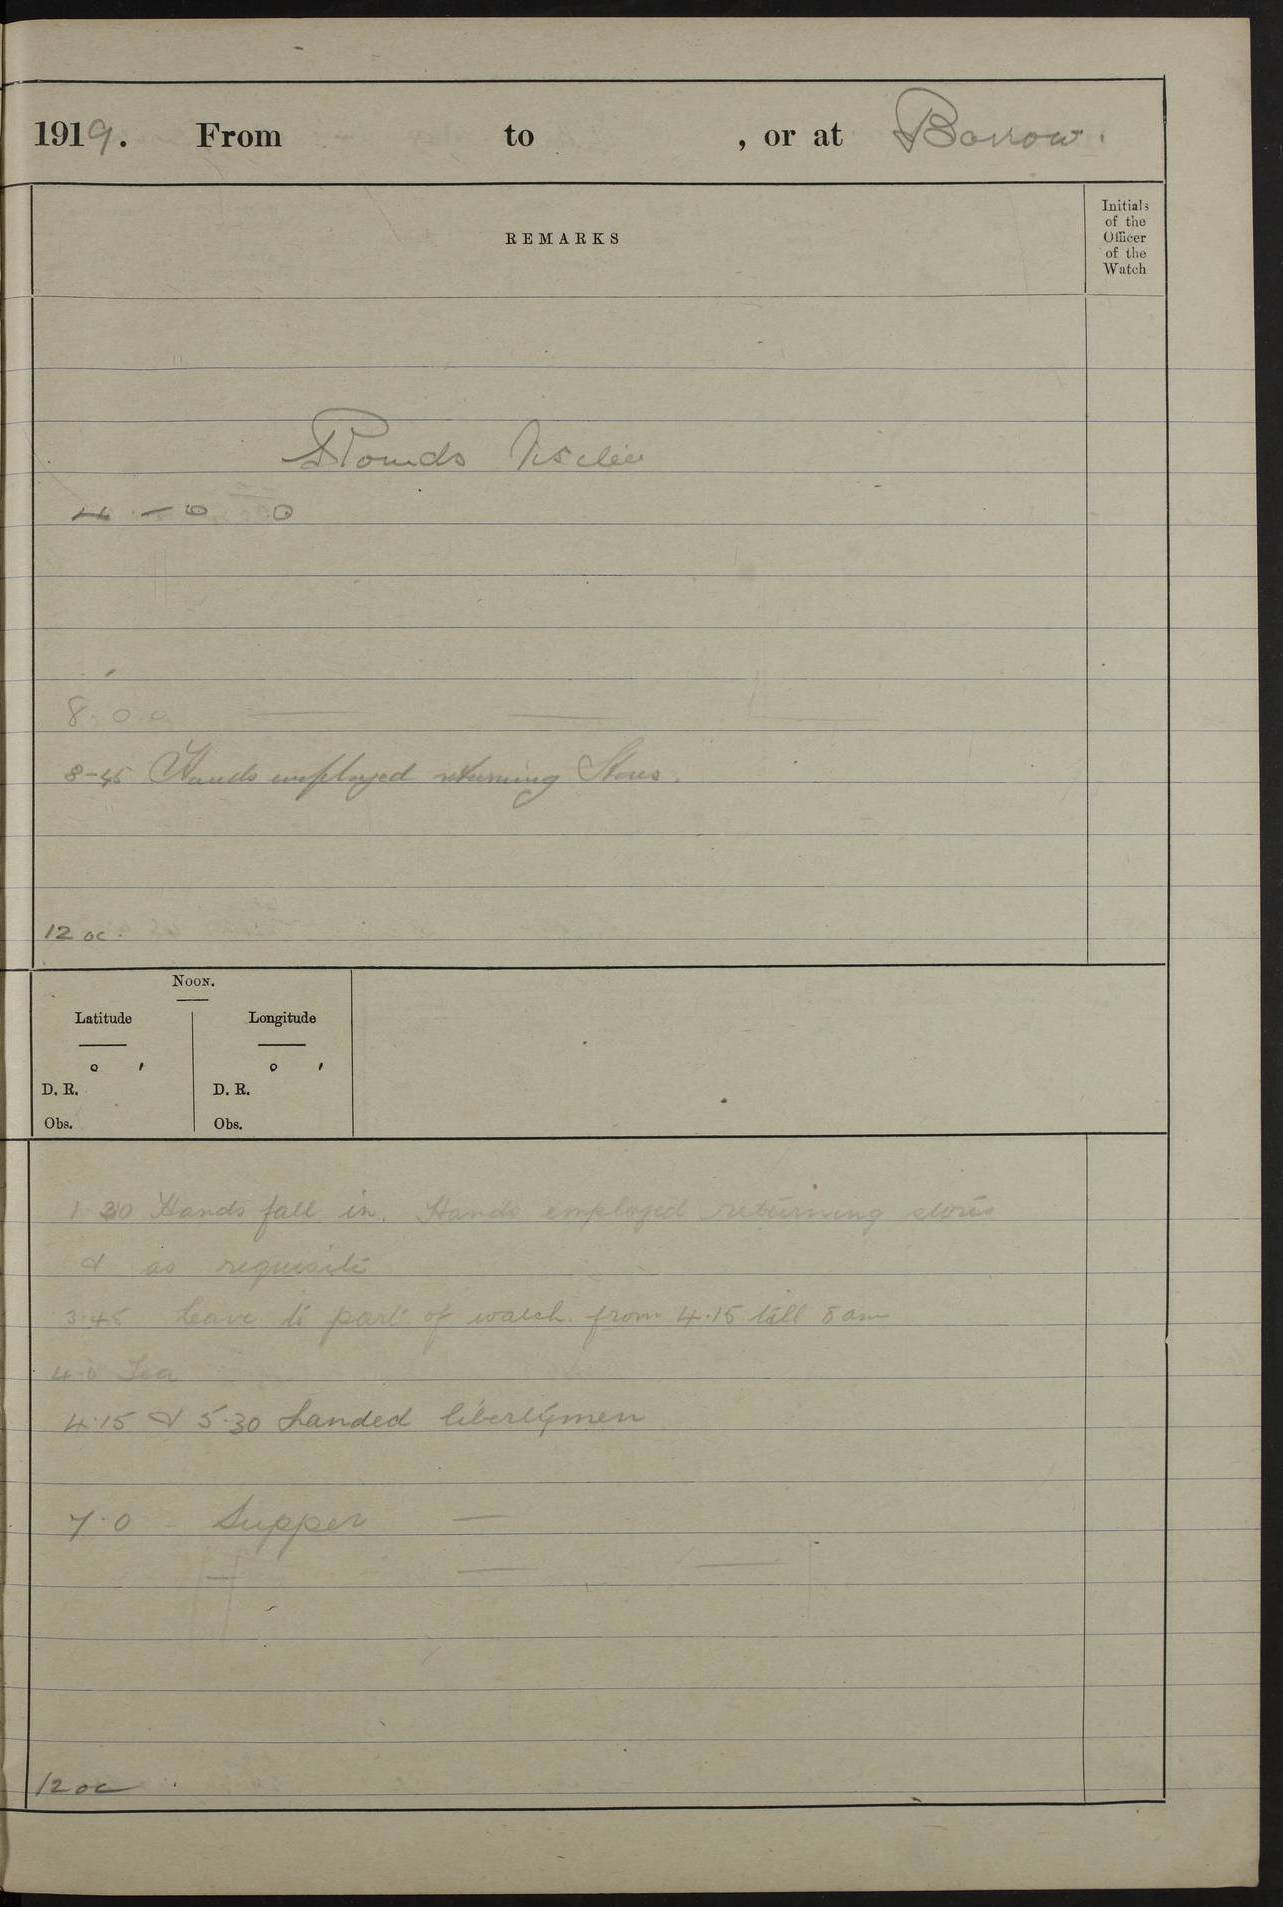 1919. From to , or at Barrow.
REMARKS
Initials
of the
Officer
of the
Watch
Rounds
4 - 0 0
8.00
8-45 Hands employed returning Stores.
12 oc.
NOON.
Latitude Longitude
° ′ ° ′
D. R. D. R.
Obs. Obs.
1 30 Hands fall in. Hands employed returning stores
& as requisite
3.45 Leave to part of watch from 4.15 till 8 am
4.0 Tea
4.15 & 5.30 Landed libertymen
7.0 - Supper —
12 oc